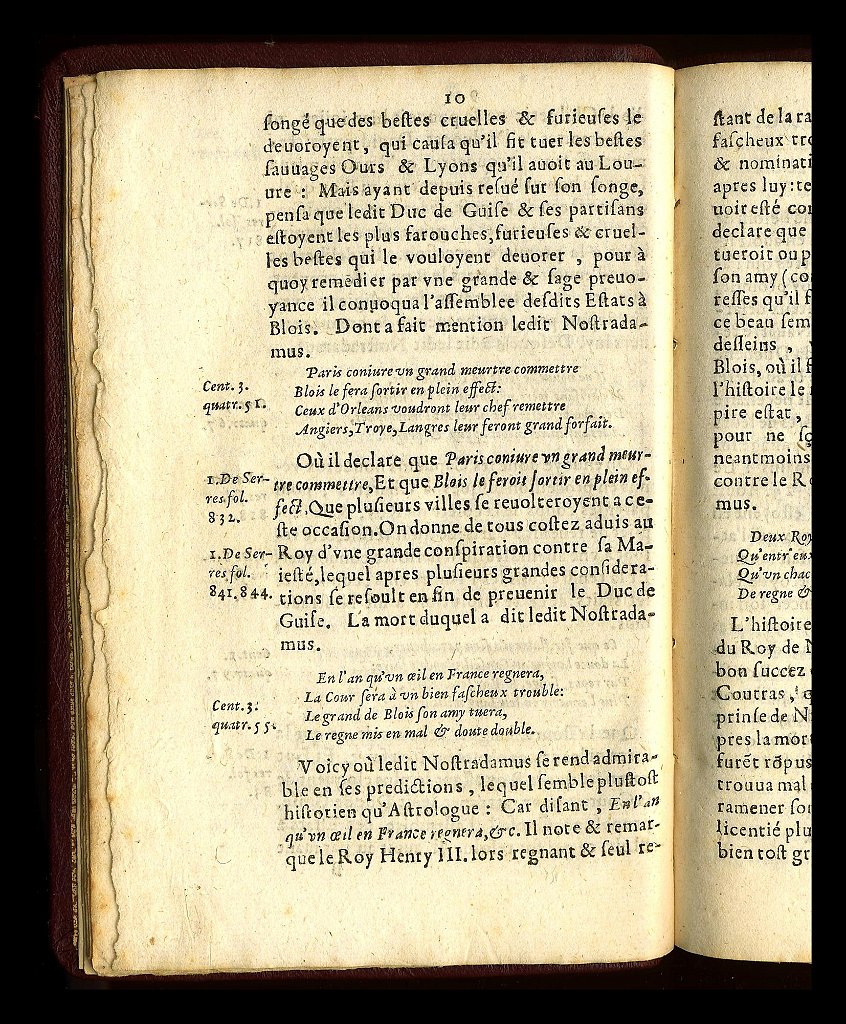 10
songé que des bestes cruelles & furieuses le
deuoroyent, qui causa qu'il fit tuer les bestes
sauuages Ours & Lyons qu'il auoit au Lou-
ure : Mais ayant depuis resué sur son songe,
pensa que ledit Duc de Guise & ses partisans
estoyent les plus farouches, furieuses & cruel-
les bestes qui le vouloyent deuorer , pour à
quoy remedier par vne grande & sage preuo-
yance il conuoqua l'assemblee desdits Estats à
Blois. Dont a fait mention ledit Nostrada-
mus.
Cent. 3.
quatr. 51.
Paris coniure vn grand meurtre commettre
Blois le fera sortir en plein effect:
Ceux d'Orleans voudront leur chef remettre
Angiers, Troye, Langres leur feront grand forfait.
1. De Ser-
res fol.
832.
Où il declare que Paris coniure vn grand meur-
tre commettre, Et que Blois le feroit sortir en plein ef-
fect, Que plusieurs villes se reuolteroyent a ce-
ste occasion. On donne de tous costez aduis au
1. De Ser-
res fol.
841. 844.
Roy d'vne grande conspiration contre sa Ma-
iesté, lequel apres plusieurs grandes considera-
tions se resoult en fin de preuenir le Duc de
Guise. La mort duquel a dit ledit Nostrada-
mus.
Cent. 3.
quatr. 55.
En l'an qu'vn œil en France regnera,
La Cour sera à vn bien fascheux trouble:
Le grand de Blois son amy tuera,
Le regne mis en mal & doute double.
Voicy où ledit Nostradamus se rend admira-
ble en ses predictions , lequel semble plustost
historien qu'Astrologue : Car disant , En l'an
qu'vn œil en France regnera, &c. Il note & remar-
que le Roy Henry III. lors regnant & seul re-
stant de la ra
fascheux tro
& nominati
apres luy: te
uoir esté con
declare que
tueroit ou p
son amy (co
resses qu'il f
ce beau sem
desseins ,
Blois, où il f
l'histoire le
pire estat,
pour ne sç
neantmoins
contre le Ro
mus.
Deux Roy
Qu'entr'eux
Qu'vn chac
De regne &
L'histoire
du Roy de N
bon succez
Coutras,
prinse de N
pres la mort
furēt rōpus
trouua mal
ramener son
licentié plu
bien tost gr